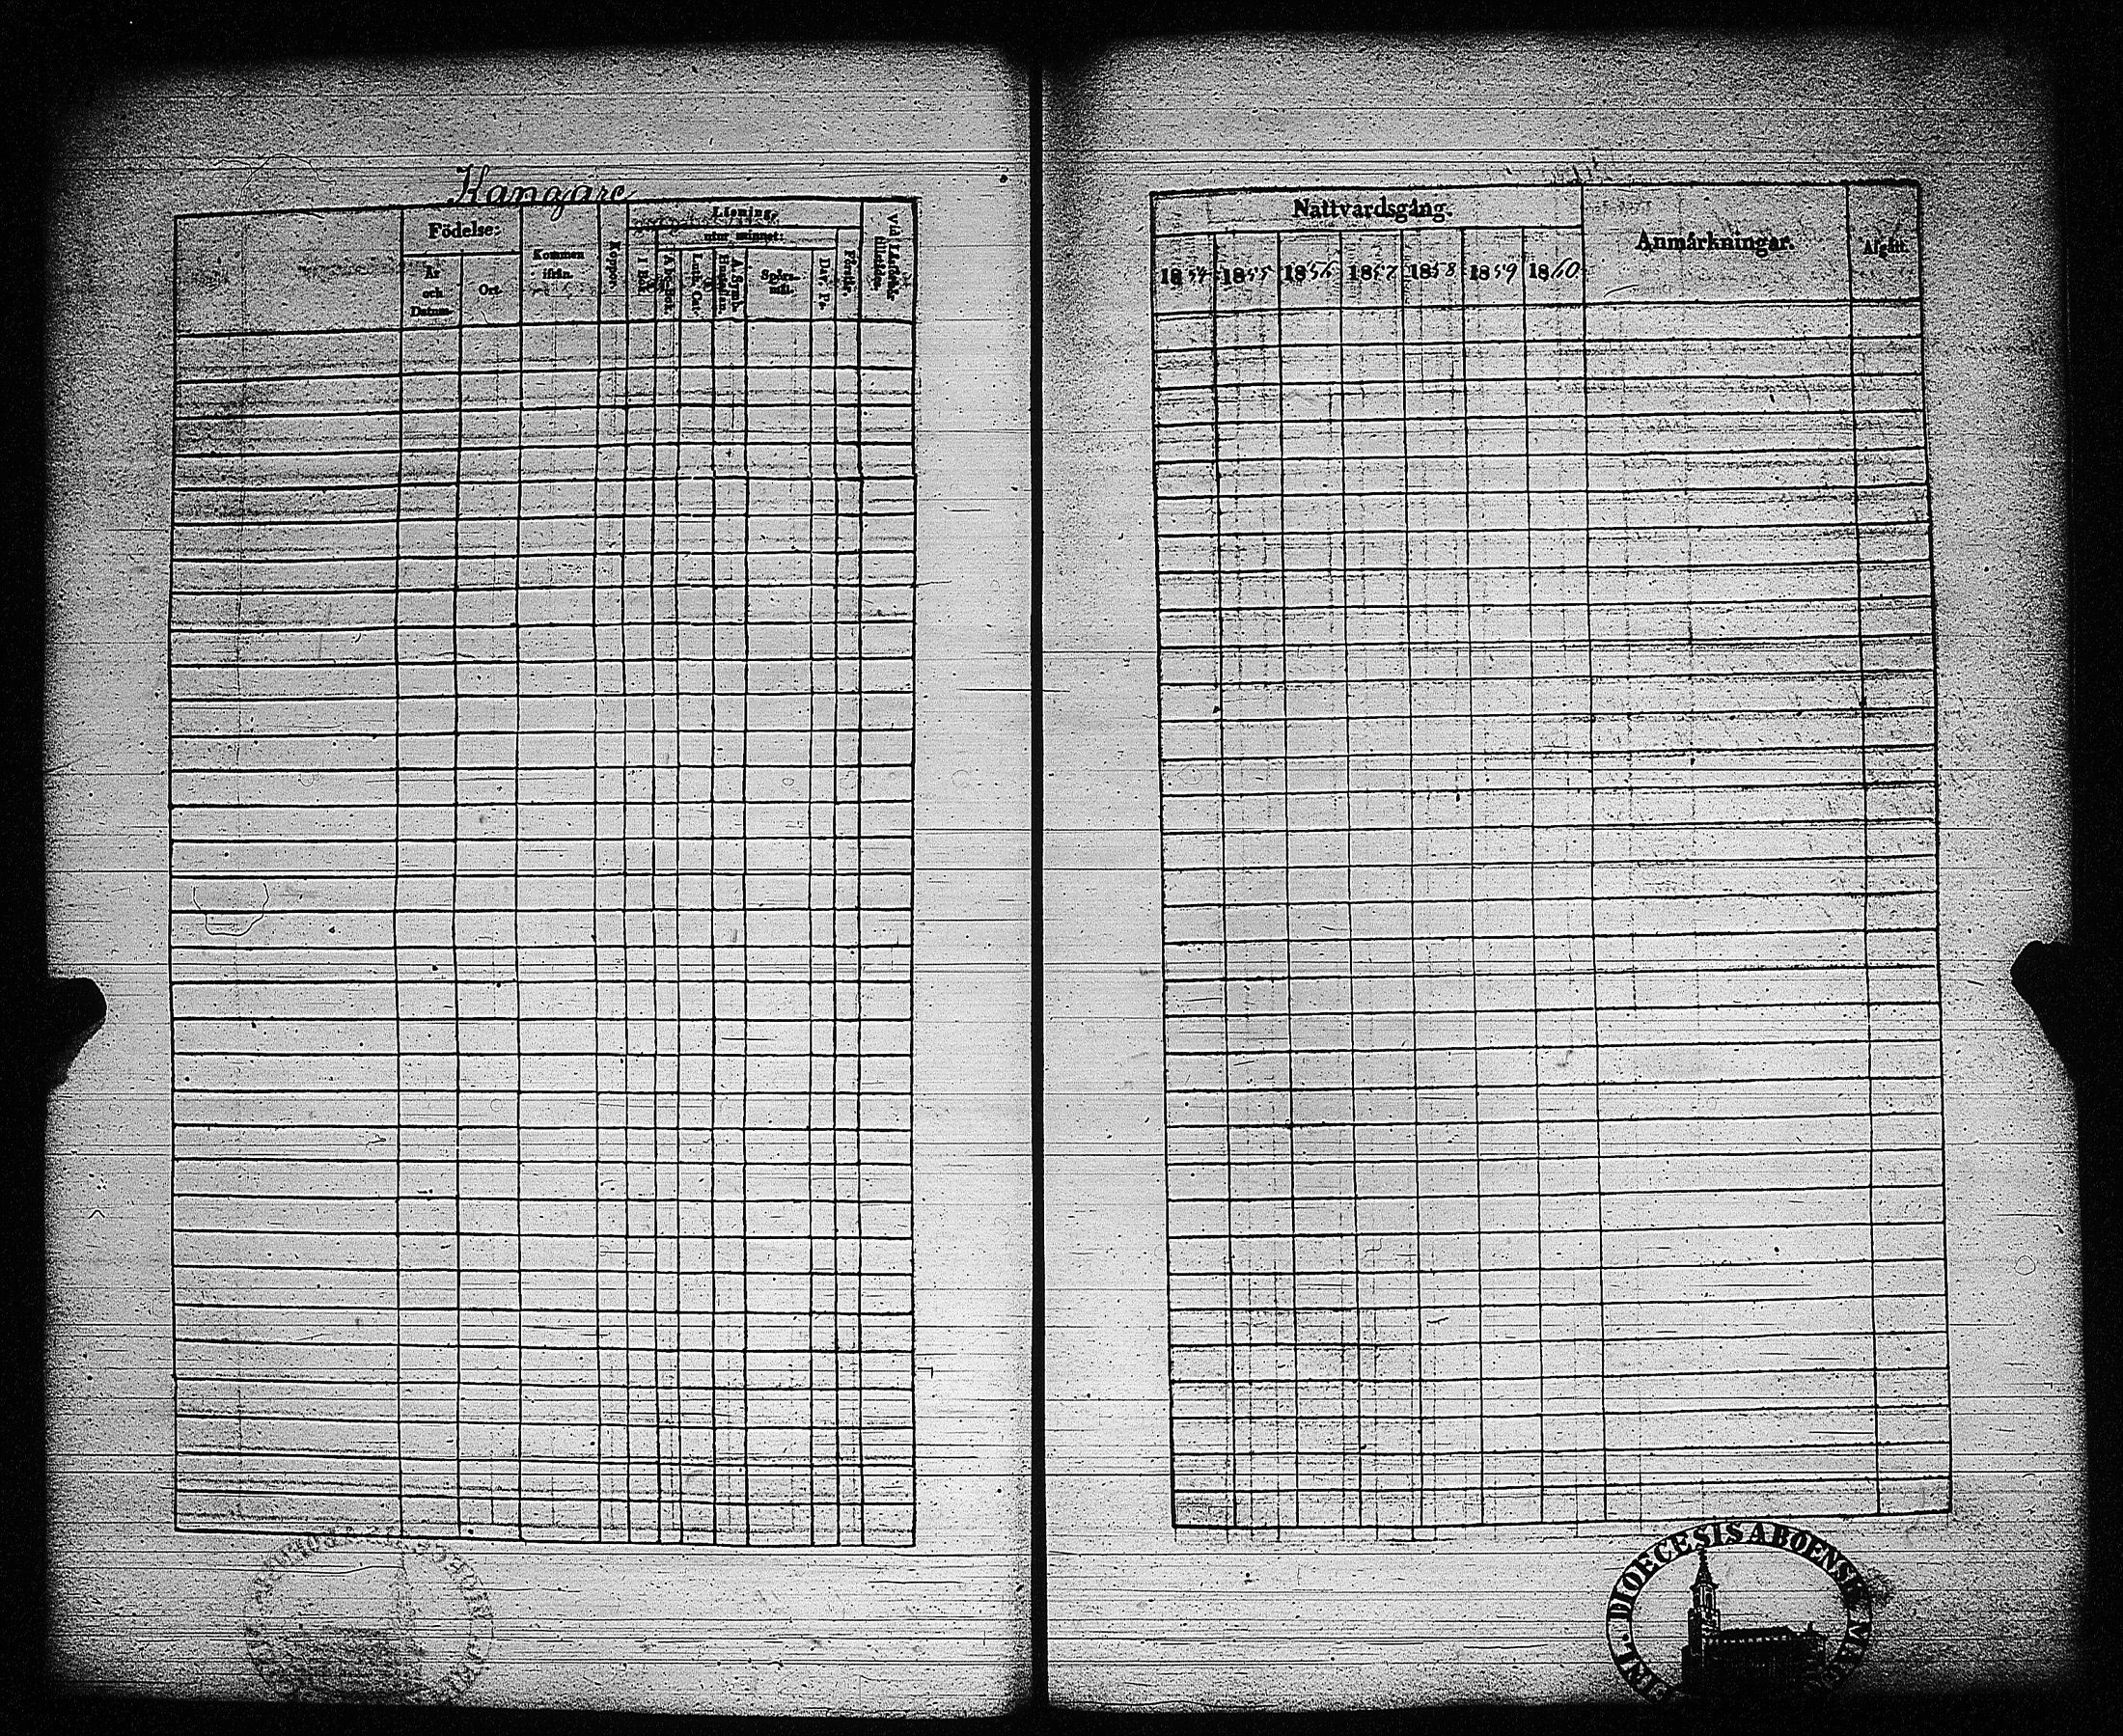 Kangare
Födelse:
År och Datum.
Ort.
Kommen ifrån.
Koppor.
Läsning,
utur minnet:
I Bok.
A b c-bok.
Luth. Cat.
A. Symb. Hustaflan.
Spörs- mål.
Dav. Ps.
Förstår.
Nattvardsgång.
1854
1855
1856
1857
1858
1859
1860
Anmärkningar.
Afgått.
DIOECESIS ABOENSIS